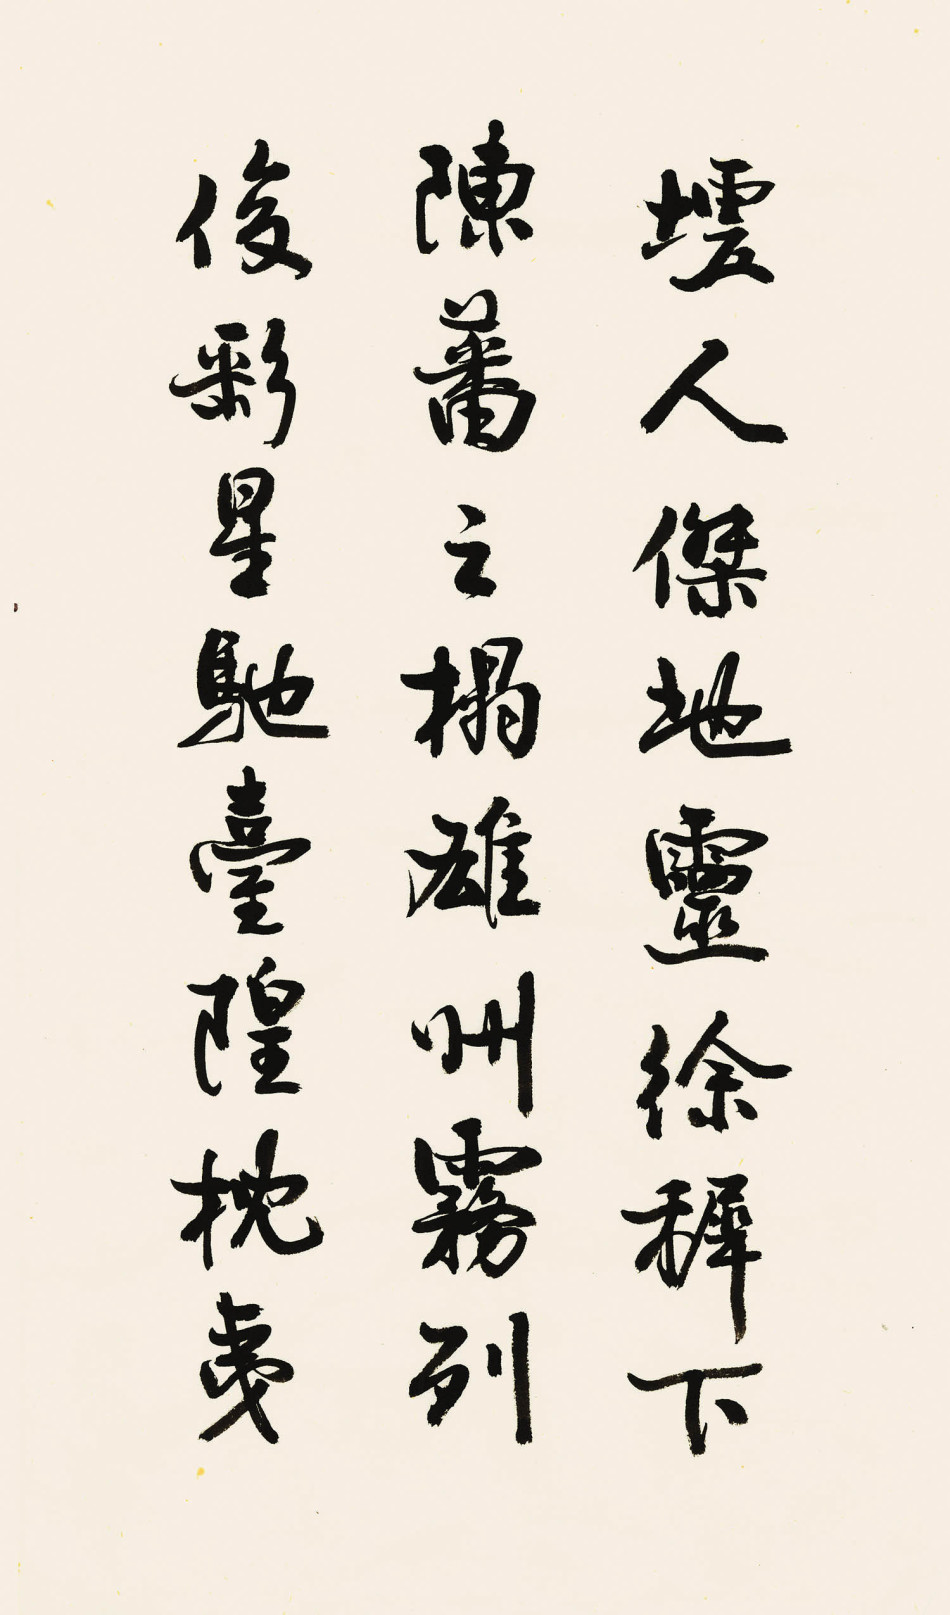 墟人傑地靈徐稺下
陳蕃之榻雄州霧列
俊彩星馳臺隍枕夷